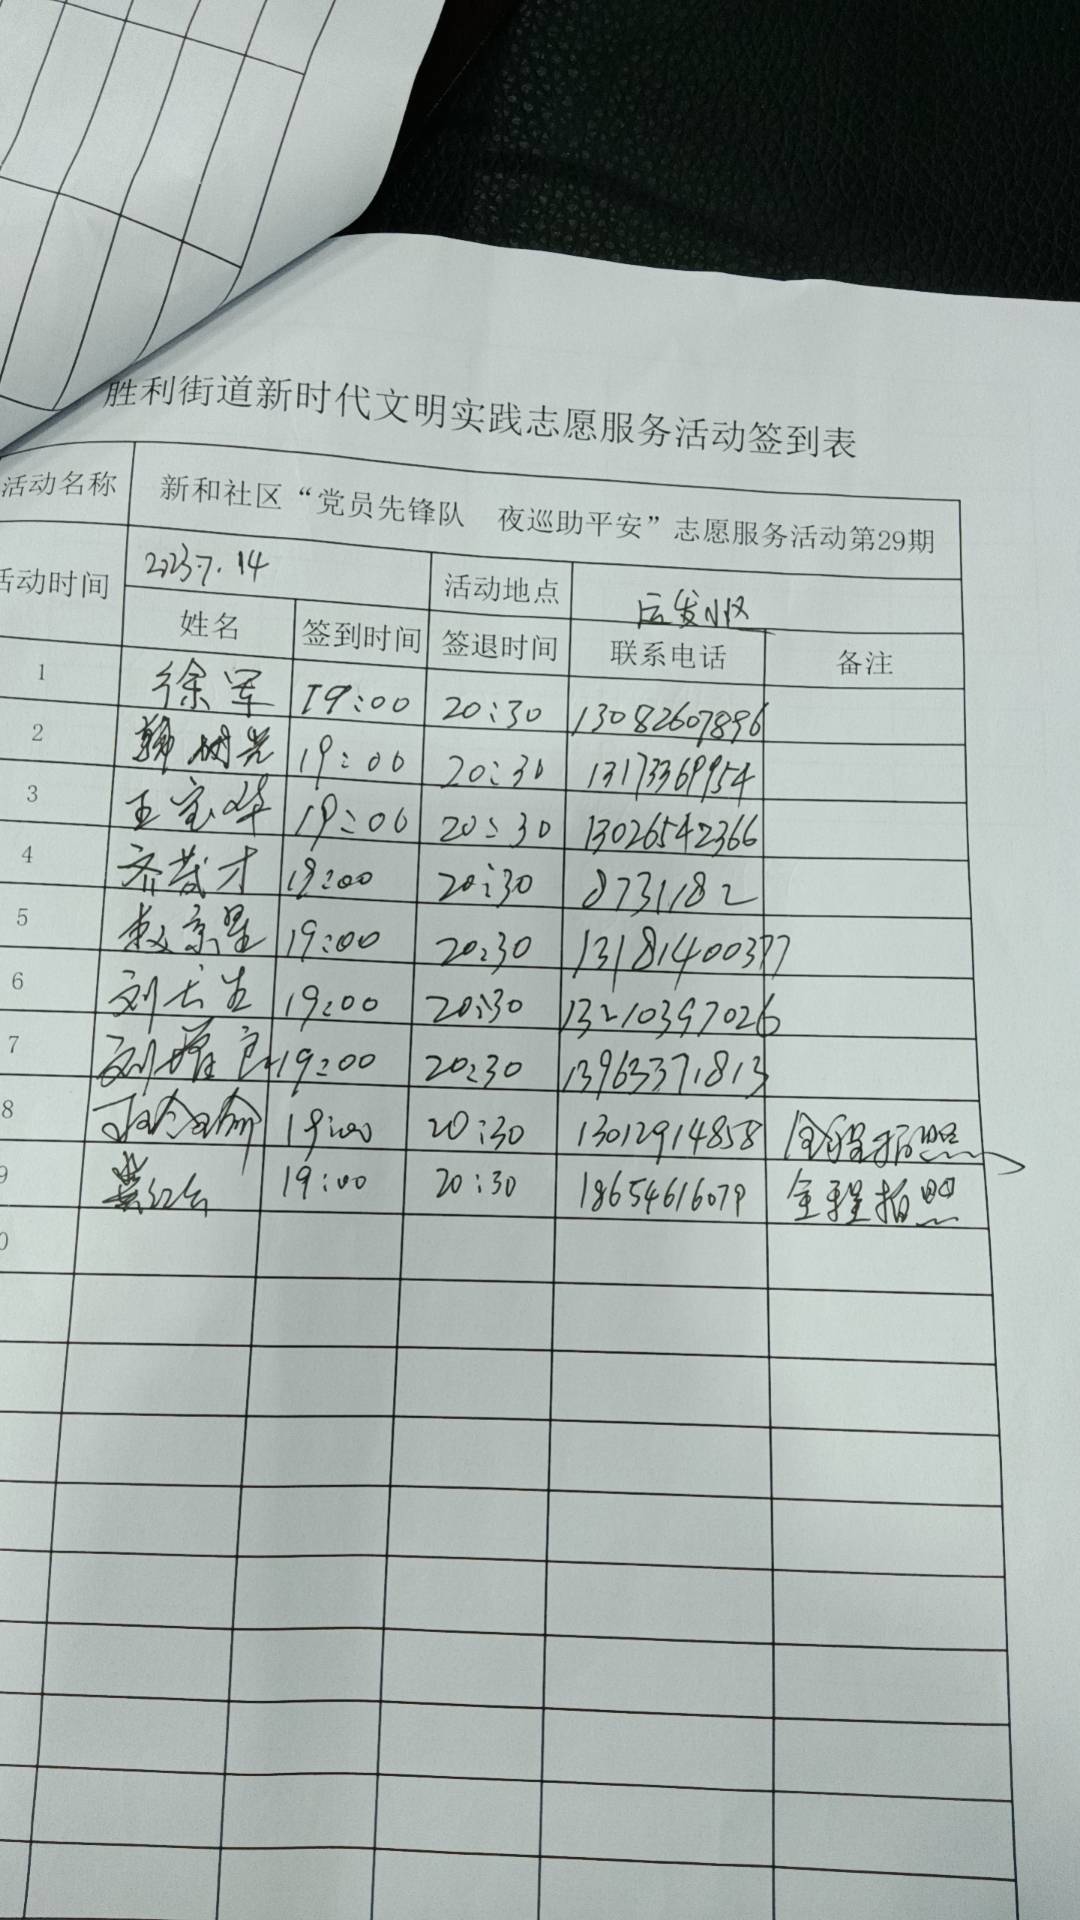 胜利街道新时代文明实践志愿服务活动签到表
活动名称 新和社区“党员先锋队 夜巡助平安”志愿服务活动第29期
活动时间 2023.7.14 活动地点
姓名 签到时间 签退时间 联系电话 备注
1 徐军 19:00 20:30 13082607896
2 韩树光 19:00 20:30 13173369954
3 王宝华 19:00 20:30 13026542366
4 齐茂才 19:00 20:30 8731182
5 京星 19:00 20:30 13181400377
6 刘长生 19:00 20:30 13210397026
7 刘 良 19:00 20:30 13963371813
8 19:00 20:30 13012914858 全程拍照
9 19:00 20:30 18654616079 全程拍照
0